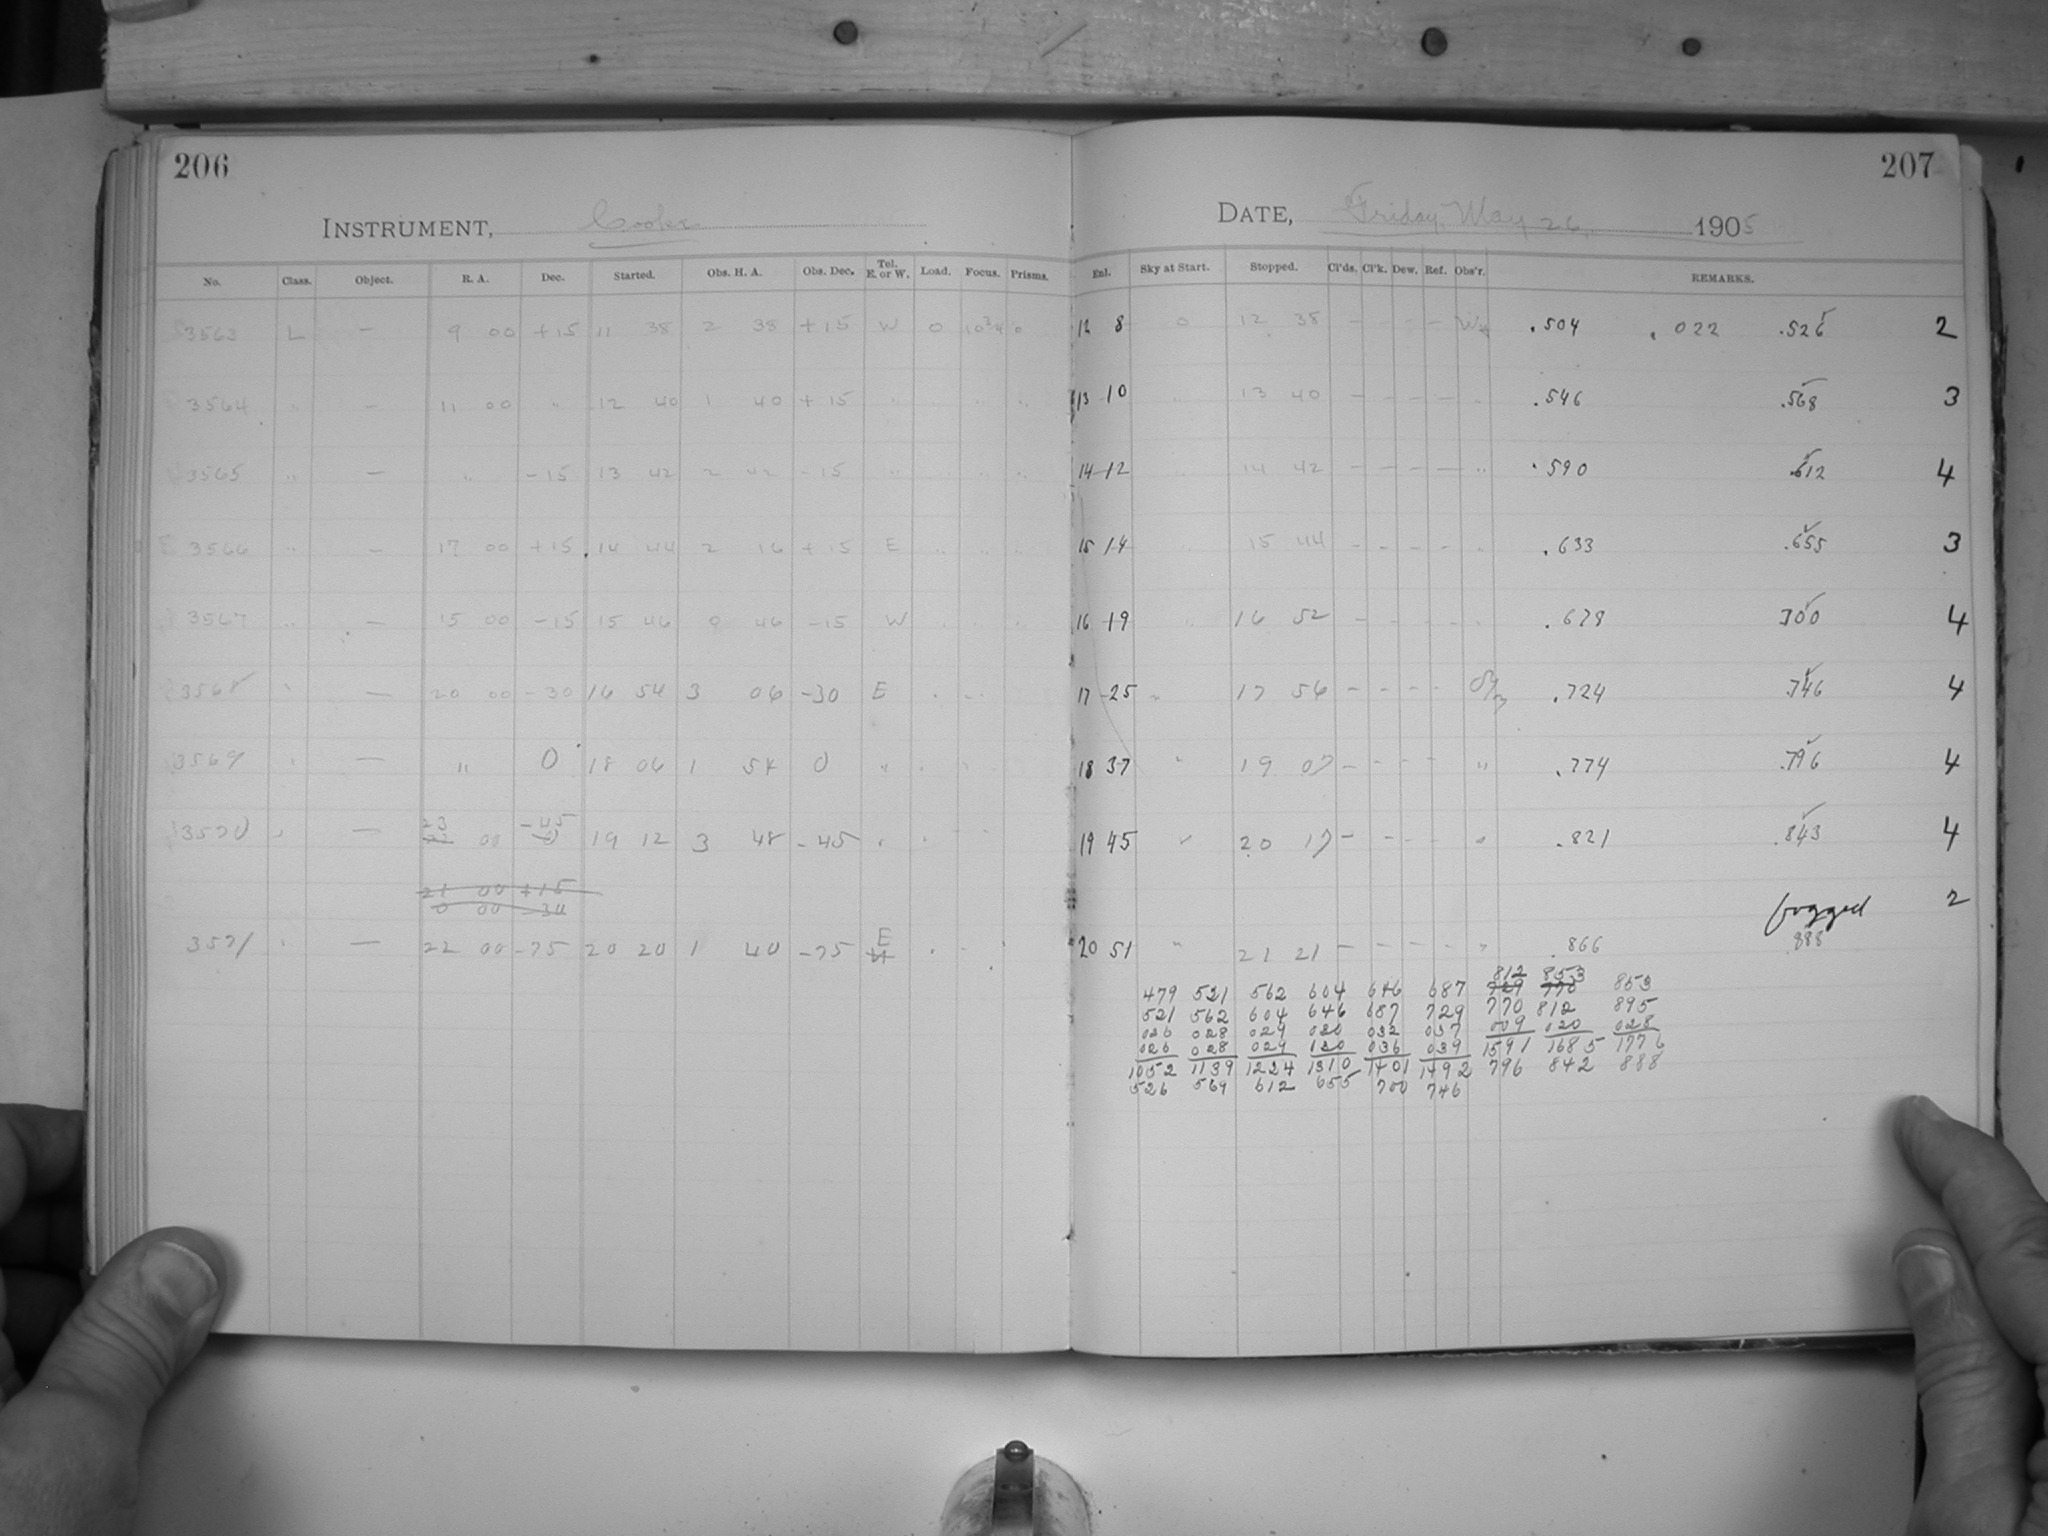 206
INSTRUMENT, Cooke
No. Class. Object. R. A. Dec. Started. Obs. H. A. Obs. Dec. Tel. E. or W. Load. Focus. Prisms.
3563 L — 9 00 +15 11 38 2 38 +15 W 0 10 3/4 0
3564 " — 11 00 " 12 40 1 40 +15 " " " "
3565 " — " -15 13 42 2 42 -15 " " " "
3566 " — 17 00 +15 14 44 2 16 +15 E " " "
3567 " — 15 00 -15 15 46 0 46 -15 W " " "
3568 " — 20 00 -30 16 54 3 06 -30 E " "
3569 " — " 0 18 06 1 54 0 " " "
3570 " — 23 00 -45 19 12 3 48 -45 " " "
21 00 +15
0 00 -30
3571 " — 22 00 -75 20 20 1 40 -75 E " "
207
DATE, Friday, May 26, 1905
Enl. Sky at Start. Stopped. Cl'ds. Cl'k. Dew. Ref. Obs'r. REMARKS.
12 8 0 12 38 — — — — .504 .022 .526 2
13 10 " 13 40 — — — — " .546 .568 3
14 12 " 14 42 — — — — " .590 .612 4
15 14 " 15 44 — — — — " .633 .655 3
16 19 " 16 52 — — — — " .678 700 4
17 25 " 17 56 — — — — .724 .746 4
18 37 " 19 07 — — — — " .774 .796 4
19 45 " 20 17 — — — — " .821 .843 4
fogged 2
20 51 " 21 21 — — — — " .866 .888
812 853
479 521 562 604 646 687 729 770 853
521 562 604 646 687 729 770 812 895
026 028 029 030 032 037 009 020 028
026 028 029 130 036 039 1591 1685 1776
1052 1139 1224 1310 1401 1492 796 842 888
526 569 612 655 700 746